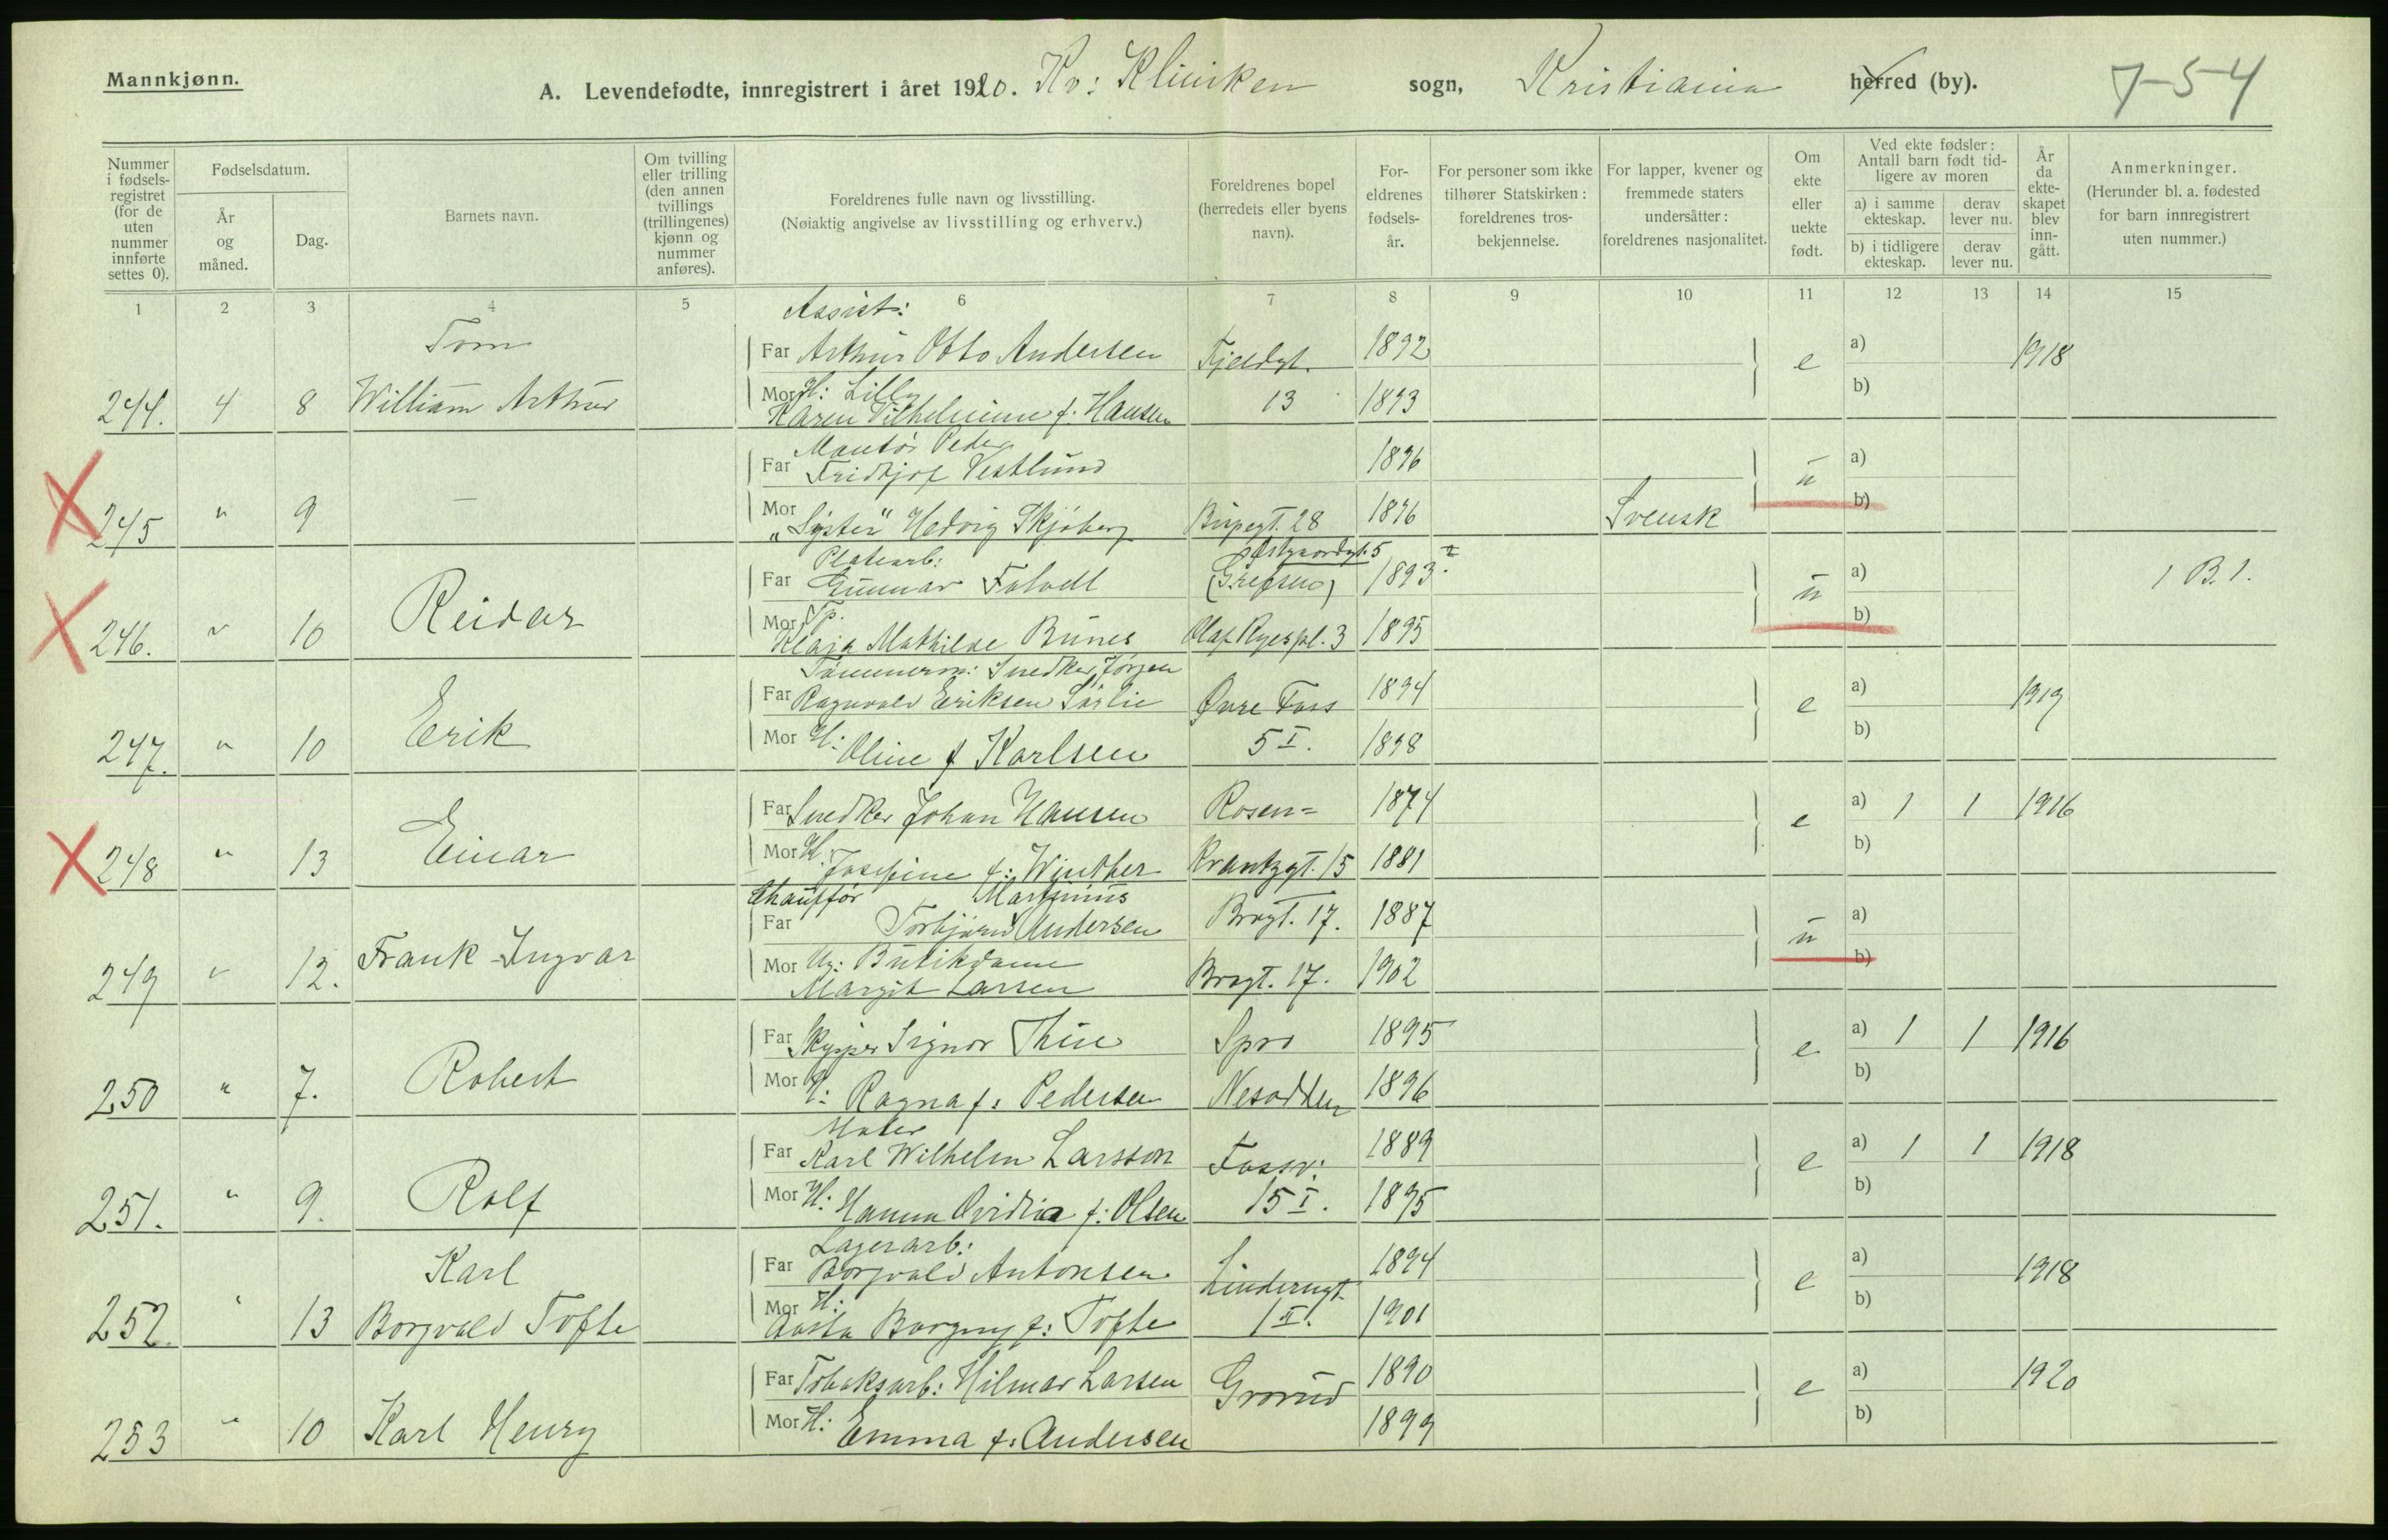 Mannkjønn.
A. Levendefødte, innregistrert i året 1920. Kv: Kliniken sogn, Kristiania herred (by). 7-54
Nummer i fødsels-registret (for de uten nummer innførte settes 0).
Fødselsdatum.
År og måned.
Dag.
Barnets navn.
Om tvilling eller trilling (den annen tvillings (trillingenes) kjønn og nummer anføres).
Foreldrenes fulle navn og livsstilling.
(Nøiaktig angivelse av livsstilling og erhverv.)
Foreldrenes bopel (herredets eller byens navn).
For-eldrenes fødsels-år.
For personer som ikke tilhører Statskirken: foreldrenes tros-bekjennelse.
For lapper, kvener og fremmede staters undersåtter: foreldrenes nasjonalitet.
Om ekte eller uekte født.
Ved ekte fødsler: Antall barn født tid-ligere av moren
a) i samme ekteskap.
derav lever nu.
b) i tidligere ekteskap.
derav lever nu.
År da ekte-skapet blev inn-gått.
Anmerkninger.
(Herunder bl. a. fødested for barn innregistrert uten nummer.)
1 2 3 4 5 6 7 8 9 10 11 12 13 14 15
Assist:
Tom
Far Arthur Otto Andersen Fjeldgt. 1892 e a) 1918
244. 4 8 William Arthur Mor H: Lilly
Karen Vilhelmine f. Hansen 13 1893 b)
Montør Peder
Far Fridtjof Vestlund 1896 u a)
245 " 9 — Mor "Syster" Hedvig Skjöberg Birpegt. 28 1896 Svensk b)
Platearb: Østgaardgt. 5
Far Gunnar Falvell (Grefsen) 1893 u a) 1 B. 1.
246. " 10 Reidar Mor Tp.
Klara Mathilde Bunes Olaf Ryes pl. 3 1895 b)
Tømmerm: Snedker Jørgen
Far Ragnvald Eriksen Sørlie Øvre Foss 1894 e a) 1919
247. " 10 Erik Mor H: Oline f Karlsen 5 I. 1898 b)
Far Snedker Johan Hansen Rosen= 1874 e a) 1 1 1916
248 " 13 Einar Mor H. Josefine f: Winther Krantzgt. 15 1881 b)
Chauffør Martinius
Far Torbjørn Andersen Brogt. 17. 1887 u a)
249 " 12. Frank Ingvar Mor Ug: Butikdame
Margit Larsen Brogt. 17. 1902 b)
Far Skipper Signor Thue Spro 1895 e a) 1 1 1916
250 " 7. Robert Mor H: Ragna f: Pedersen Nesodden 1896 b)
Maler
Far Karl Wilhelm Larsson Fossv: 1889 e a) 1 1 1918
251. " 9. Rolf Mor H: Hanna Ovidia f: Olsen 15 I. 1895 b)
Lagerarb:
Karl
Far Borgvald Antonsen Linderngt. 1894 e a) 1918
252. " 13 Borgvald Tofte Mor H:
Aasta Borgny f: Tofte 1 II. 1901 b)
Far Tobaksarb: Hilmar Larsen Grorud 1890 e a) 1920
253 " 10 Karl Henry Mor H: Emma f: Andersen 1899 b)